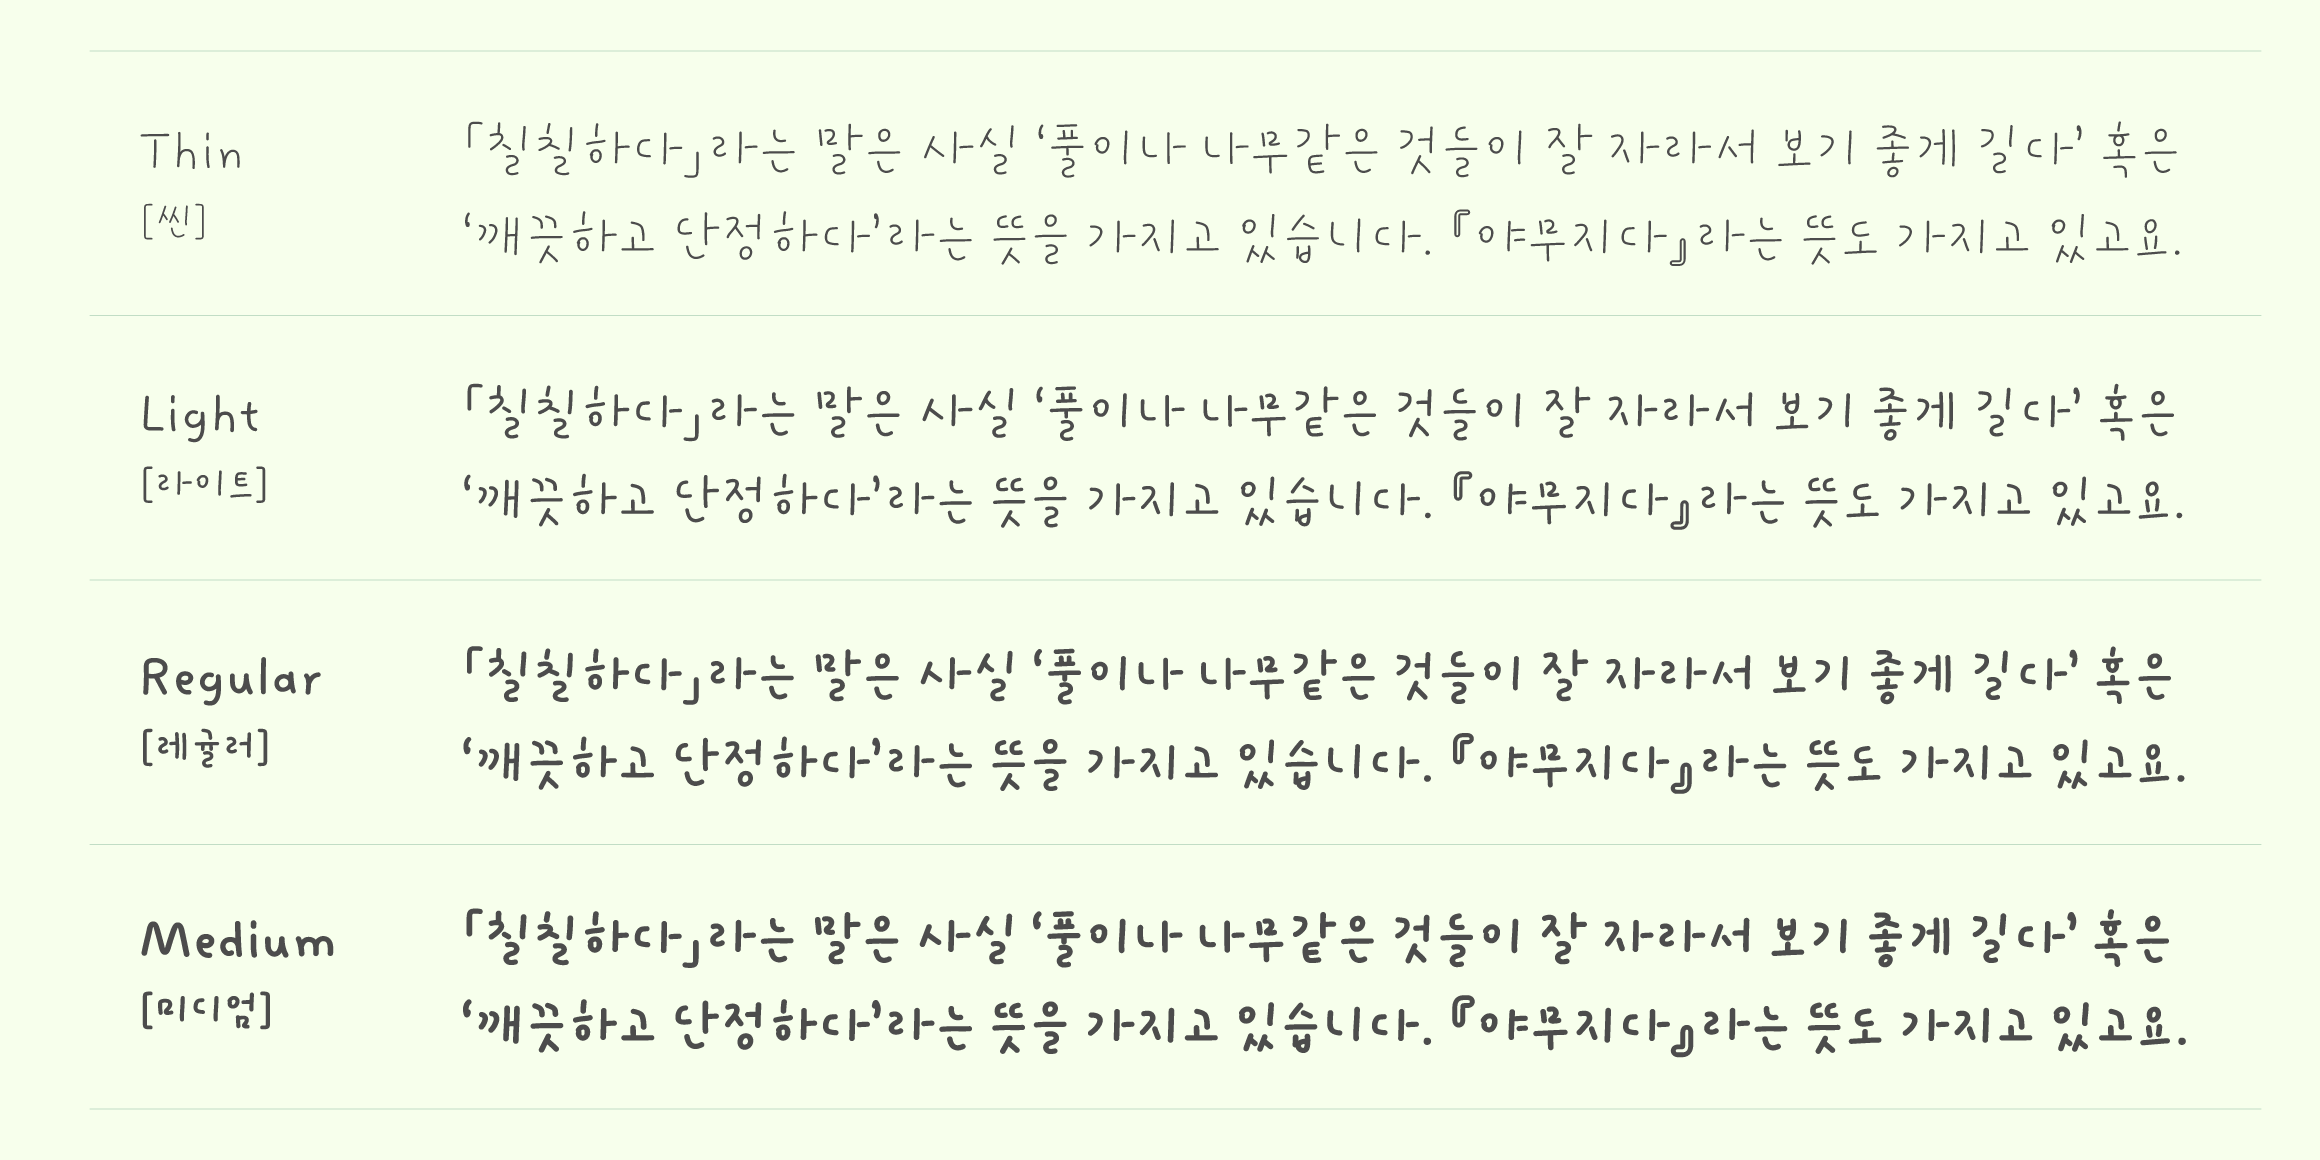 Thin
[씬]
「칠칠하다」라는 말은 사실 ‘풀이나 나무같은 것들이 잘 자라서 보기 좋게 길다’ 혹은
‘깨끗하고 단정하다’라는 뜻을 가지고 있습니다. 『야무지다』라는 뜻도 가지고 있고요.
Light
[라이트]
「칠칠하다」라는 말은 사실 ‘풀이나 나무같은 것들이 잘 자라서 보기 좋게 길다’ 혹은
‘깨끗하고 단정하다’라는 뜻을 가지고 있습니다. 『야무지다』라는 뜻도 가지고 있고요.
Regular
[레귤러]
「칠칠하다」라는 말은 사실 ‘풀이나 나무같은 것들이 잘 자라서 보기 좋게 길다’ 혹은
‘깨끗하고 단정하다’라는 뜻을 가지고 있습니다. 『야무지다』라는 뜻도 가지고 있고요.
Medium
[미디엄]
「칠칠하다」라는 말은 사실 ‘풀이나 나무같은 것들이 잘 자라서 보기 좋게 길다’ 혹은
‘깨끗하고 단정하다’라는 뜻을 가지고 있습니다. 『야무지다』라는 뜻도 가지고 있고요.